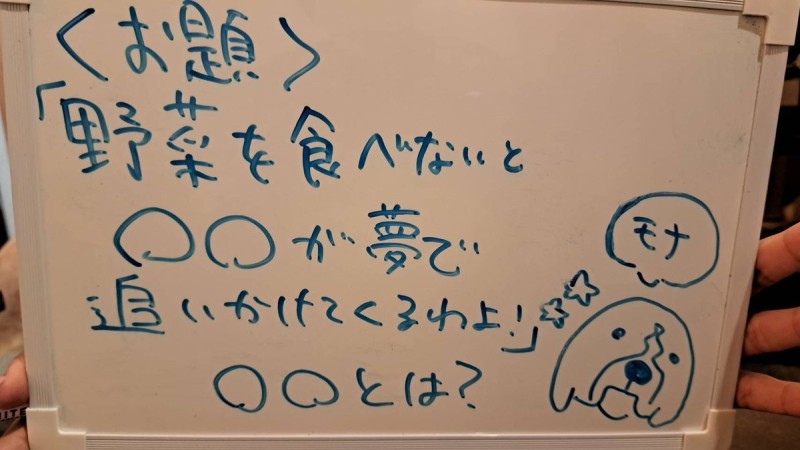 〈お題〉
「野菜を食べないと
〇〇が夢で
追いかけてくるわよ!」
〇〇とは?
モナ